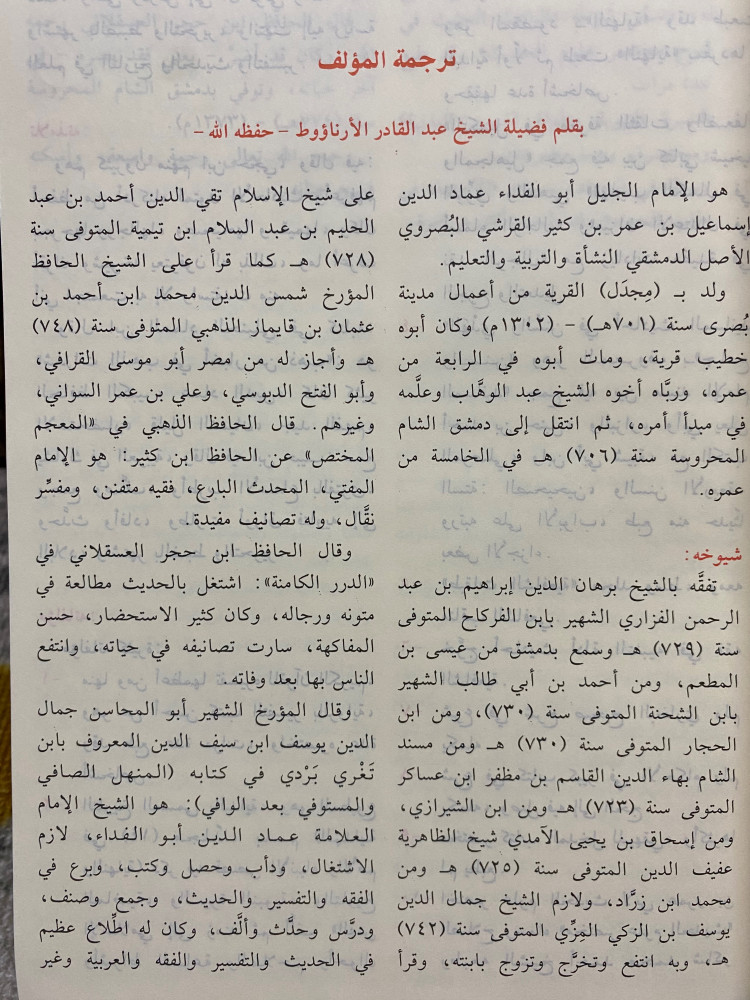 ترجمة المؤلف
بقلم فضيلة الشيخ عبد القادر الأرناؤوط - حفظه الله -
هو الإمام الجليل أبو الفداء عماد الدين
إسماعيل بن عمر بن كثير القرشي البُصروي
الأصل الدمشقي النشأة والتربية والتعليم.
ولد بـ (مِجدَل) القرية من أعمال مدينة
بُصرى سنة (٧٠١هـ) - (١٣٠٢م) وكان أبوه
خطيب قرية، ومات أبوه في الرابعة من
عمره، وربَّاه أخوه الشيخ عبد الوهَّاب وعلَّمه
في مبدأ أمره، ثم انتقل إلى دمشق الشام
المحروسة سنة (٧٠٦) هـ في الخامسة من
عمره.
شيوخه:
تفقَّه بالشيخ برهان الدين إبراهيم بن عبد
الرحمن الفزاري الشهير بابن الفركاح المتوفى
سنة (٧٢٩) هـ وسمع بدمشق من عيسى بن
المطعم، ومن أحمد بن أبي طالب الشهير
بابن الشحنة المتوفى سنة (٧٣٠)، ومن ابن
الحجار المتوفى سنة (٧٣٠) هـ ومن مسند
الشام بهاء الدين القاسم بن مظفر ابن عساكر
المتوفى سنة (٧٢٣) هـ ومن ابن الشيرازي،
ومن إسحاق بن يحيى الآمدي شيخ الظاهرية
عفيف الدين المتوفى سنة (٧٢٥) هـ ومن
محمد ابن زرَّاد، ولازم الشيخ جمال الدين
يوسف بن الزكي المِزِّي المتوفى سنة (٧٤٢)
هـ، وبه انتفع وتخرَّج وتزوج بابنته، وقرأ
على شيخ الإسلام تقي الدين أحمد بن عبد
الحليم بن عبد السلام ابن تيمية المتوفى سنة
(٧٢٨) هـ كما قرأ على الشيخ الحافظ
المؤرخ شمس الدين محمد ابن أحمد بن
عثمان بن قايماز الذهبي المتوفى سنة (٧٤٨)
هـ وأجاز له من مصر أبو موسى القرافي،
وأبو الفتح الدبوسي، وعلي بن عمر السواني،
وغيرهم. قال الحافظ الذهبي في «المعجم
المختص» عن الحافظ ابن كثير: هو الإمام
المفتي، المحدث البارع، فقيه متفنن، ومفسِّر
نقَّال، وله تصانيف مفيدة.
وقال الحافظ ابن حجر العسقلاني في
«الدرر الكامنة»: اشتغل بالحديث مطالعة في
متونه ورجاله، وكان كثير الاستحضار، حسن
المفاكهة، سارت تصانيفه في حياته، وانتفع
الناس بها بعد وفاته.
وقال المؤرخ الشهير أبو المحاسن جمال
الدين يوسف ابن سيف الدين المعروف بابن
تَغْري بَرْدي في كتابه (المنهل الصافي
والمستوفي بعد الوافي): هو الشيخ الإمام
العلامة عماد الدين أبو الفداء، لازم
الاشتغال، ودأب وحصل وكتب، وبرع في
الفقه والتفسير والحديث، وجمع وصنف،
ودرَّس وحدَّث وألَّف، وكان له اطِّلاع عظيم
في الحديث والتفسير والفقه والعربية وغير